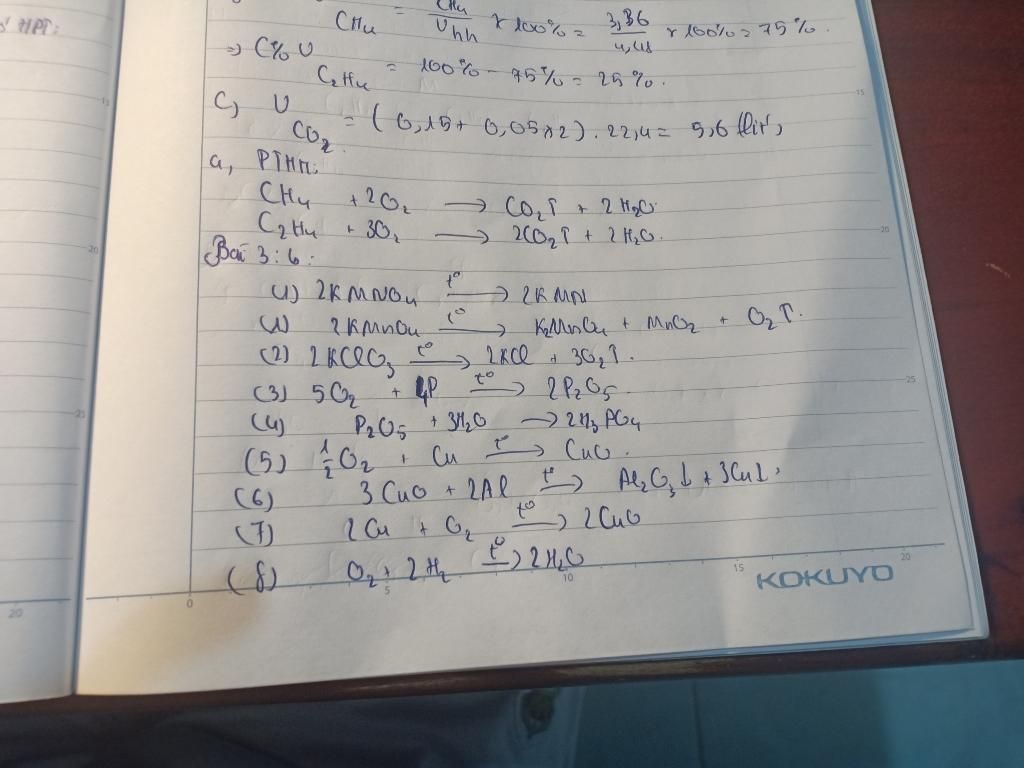 HPT:
CH4 = CH4 / Vhh x 100% = 3,36 / 4,48 x 100% = 75%.
=> C% V C2H4 = 100% - 75% = 25%.
c, V CO2 = (0,15 + 0,05x2) . 22,4 = 5,6 (lít)
a, PTHH:
CH4 + 2O2 → CO2↑ + 2H2O
C2H4 + 3O2 → 2CO2↑ + 2H2O.
Bài 3: 6:
(1) 2KMNO4 t° → 2KMN
(1) 2KMnO4 t° → K2MnO4 + MnO2 + O2↑.
(2) 2KClO3 t° → 2KCl + 3O2↑.
(3) 5O2 + 4P t° → 2P2O5
(4) P2O5 + 3H2O → 2H3PO4
(5) 1/2 O2 + Cu t° → CuO.
(6) 3CuO + 2Al t° → Al2O3↓ + 3Cu↓
(7) 2Cu + O2 t° → 2CuO
(8) O2 + 2H2 t° → 2H2O
KOKUYO
0 5 10 15 20
15
20
25
15
20
25
20